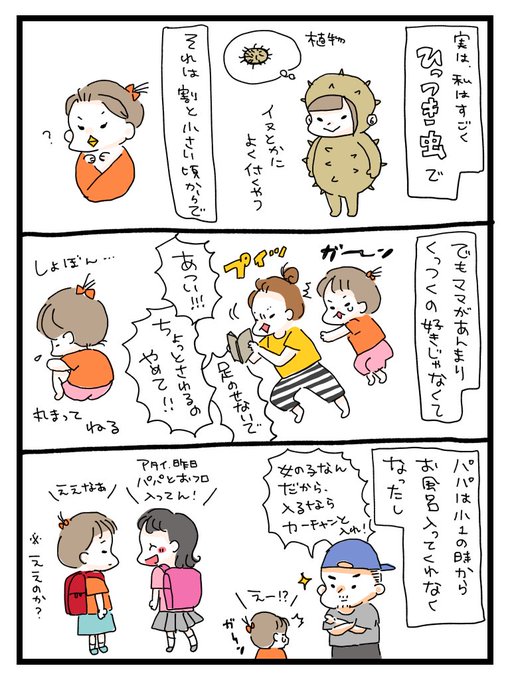 実は、私はすごく
ひっつき虫で
植物
イヌとかに
よく付くやつ
それは割と小さい頃からで
?
でもママがあんまり
くっつくの好きじゃなくて
ガーーン
プイッ
足のせないで
あつい!!!
ちょっとさわるの
やめて!!
しょぼん…
丸まって
ねる
パパは小1の時から
お風呂入ってくれなく
なったし
女の子なん
だから、
入るなら
カーチャンと
入れ!
えー!?
ガーン
アタイ、昨日
パパとおフロ
入ってん!
ええなあ
※ええのか?